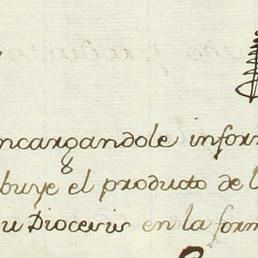 ncargandole infor
buye el producto de l
u Diocesis en la form